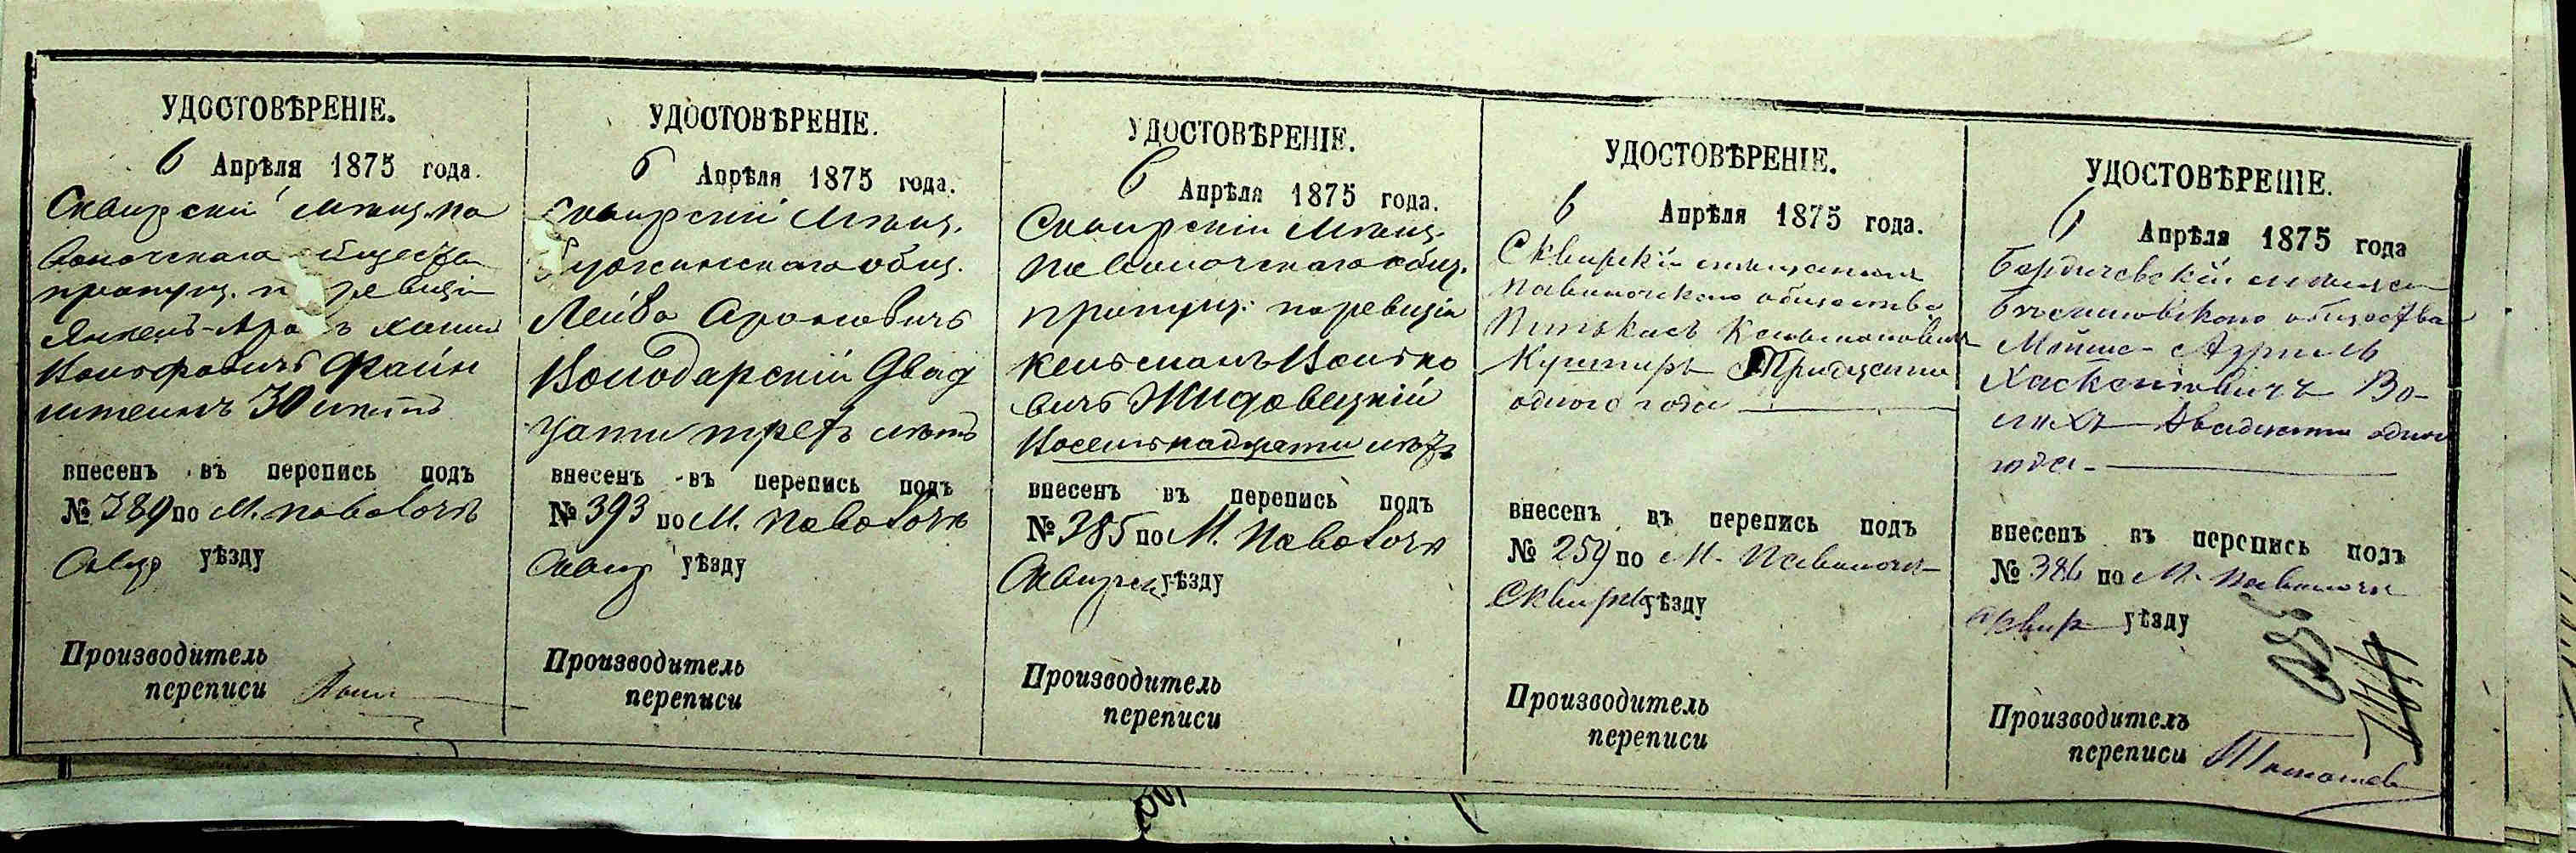 УДОСТОВѢРЕНІЕ.
6 Апрѣля 1875 года.
Сквирскій мѣщ. па
волочскаго общества
пропущ. по ревизіи
Янкель-Аро ъ
Фаин
штеинъ 30 лѣтъ
внесенъ въ перепись подъ
№ 389 по М. Паволочѣ
Сквир уѣзду
Производитель
переписи
УДОСТОВѢРЕНІЕ.
6 Апрѣля 1875 года.
Сквирскій Мѣщ.
общ.
Лейба Ароновичъ
Володарскій Двад
цати трехъ лѣтъ
внесенъ въ перепись подъ
№ 393 по М. Паволочѣ
Сквир уѣзду
Производитель
переписи
УДОСТОВѢРЕНІЕ.
6 Апрѣля 1875 года.
Сквирскій Мѣщ.
Паволочскаго общ.
пропущ: по ревизіи
Кельманъ Волько
вичъ Жидовецкій
Восемнадцати лѣтъ
внесенъ въ перепись подъ
№ 385 по М. Паволочѣ
Сквирск уѣзду
Производитель
переписи
УДОСТОВѢРЕНІЕ.
6 Апрѣля 1875 года.
Сквирскій мѣщанинъ
Паволочскаго общества
Пинькасъ Кельмановичъ
Кушниръ Тридцати
одного года
внесенъ въ перепись подъ
№ 259 по М. Паволочи
Сквирск уѣзду
Производитель
переписи
УДОСТОВѢРЕНІЕ.
6 Апрѣля 1875 года
Бердичевскій мѣщан
общества
Мошко Азриль
Хаскелевичъ Во-
лихъ двадцати одного
года
внесенъ въ перепись подъ
№ 386 по М. Паволочи
Сквир уѣзду
Производитель
переписи